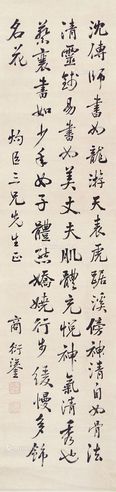 沈傳師書如龍游天表虎踞溪傍神清自如骨法
清靈錢易書如美丈夫肌體充悅神氣清秀也
蔡襄書如少年女子體態嬌嬈行步緩慢多飾
名花
灼臣三兄先生正
商衍鎏